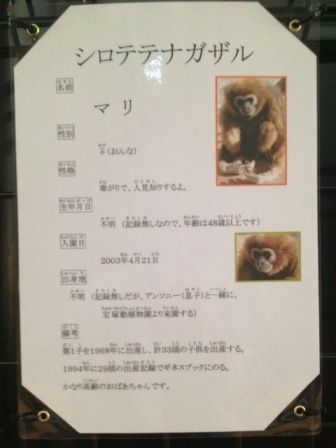 シロテテナガザル
名前
マリ
性別
♀（おんな）
性格
寒がりで、人見知りするよ。
生年月日
不明（記録無しなので、年齢は48歳以上です）
入園日
2003年4月21日
出身地
不明（記録無しだが、アンソニー（息子）と一緒に、
宝塚動植物園より来園する）
備考
第1子を1968年に出産し、計33頭の子供を出産する。
1994年に29頭の出産記録でギネスブックにのる。
かなり高齢のおばあちゃんです。